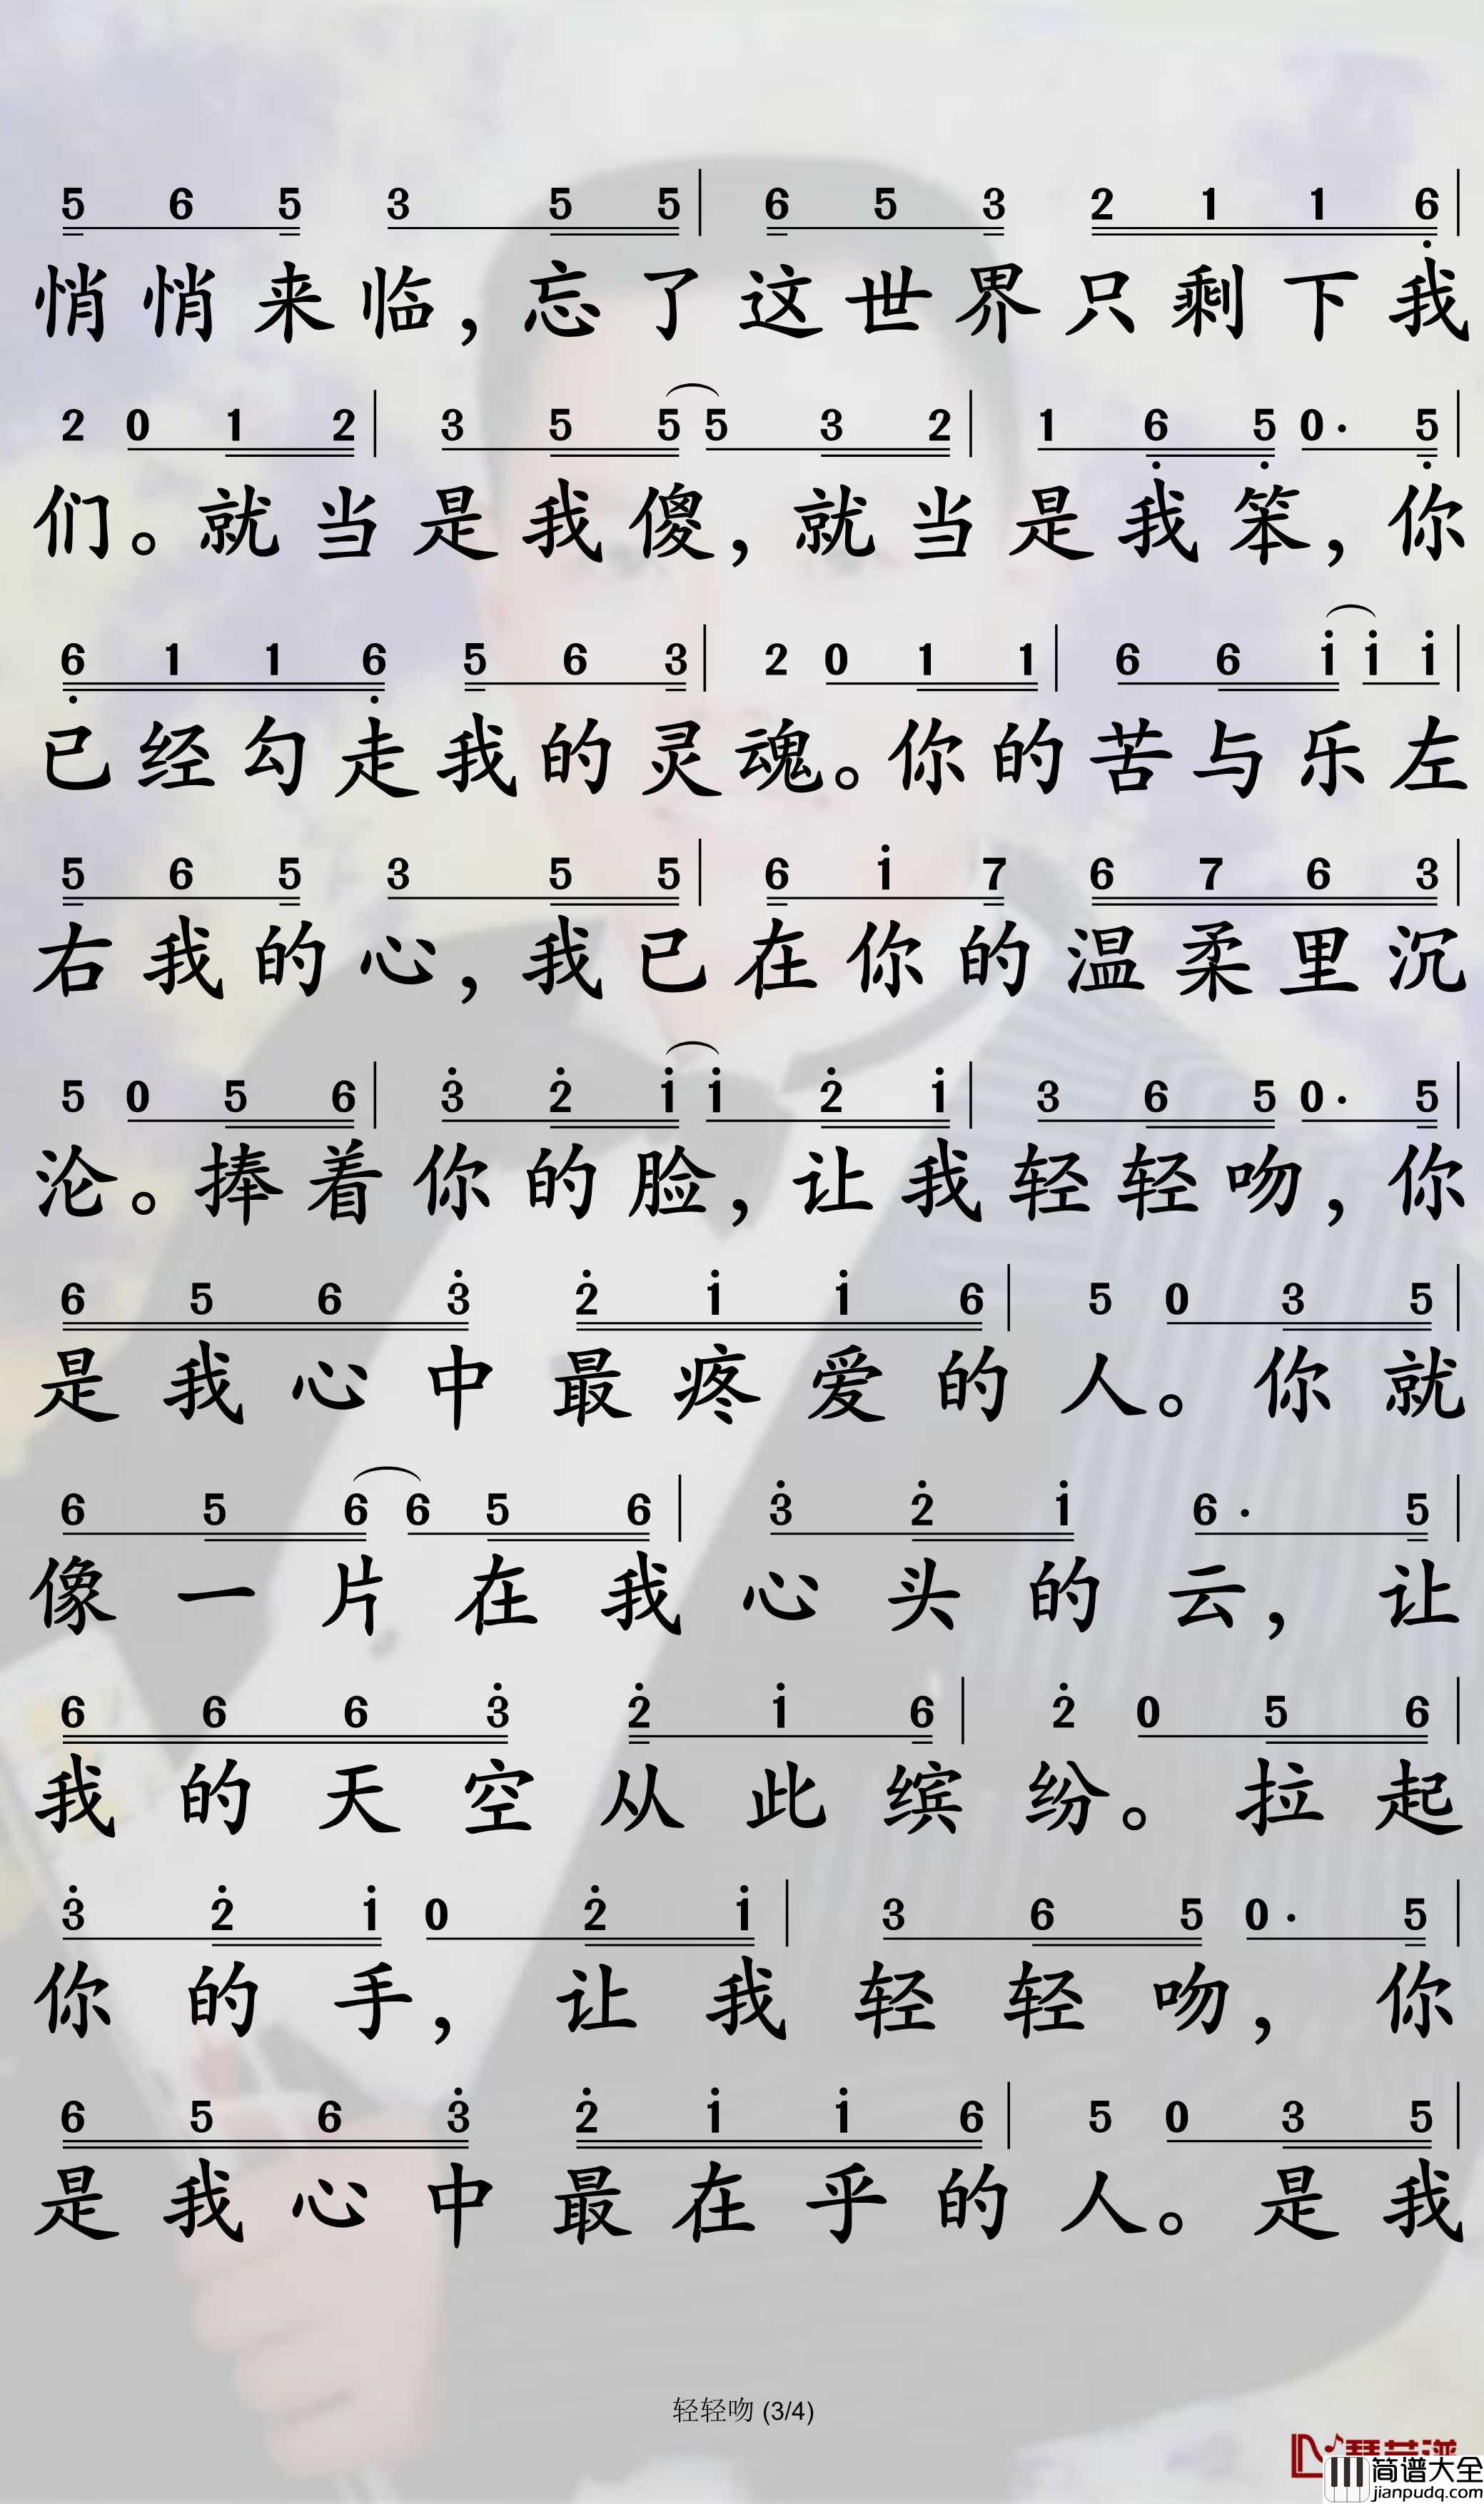 5 6 5 3 5 5 | 6 5 3 2 1 1 6̣ |
悄悄来临，忘了这世界只剩下我
2 0 1 2 | 3 5 5 5 3 2 | 1 6̣ 5̣ 0· 5̣ |
们。就当是我傻，就当是我笨，你
6̣ 1 1 6̣ 5 6 3 | 2 0 1 1 | 6 6 1̇ 1̇ 1̇ |
已经勾走我的灵魂。你的苦与乐左
5 6 5 3 5 5 | 6 1̇ 7 6 7 6 3 |
右我的心，我已在你的温柔里沉
5 0 5 6 | 3̇ 2̇ 1̇ 1̇ 2̇ 1̇ | 3 6 5 0· 5 |
沦。捧着你的脸，让我轻轻吻，你
6 5 6 3̇ 2̇ 1̇ 1̇ 6 | 5 0 3 5 |
是我心中最疼爱的人。你就
6 5 6 6 5 6 | 3̇ 2̇ 1̇ 6· 5 |
像一片在我心头的云，让
6 6 6 3̇ 2̇ 1̇ 6 | 2̇ 0 5 6 |
我的天空从此缤纷。拉起
3̇ 2̇ 1̇ 0 2̇ 1̇ | 3 6 5 0· 5 |
你的手，让我轻轻吻，你
6 5 6 3̇ 2̇ 1̇ 1̇ 6 | 5 0 3 5 |
是我心中最在乎的人。是我
轻轻吻 (3/4)
简谱大全
jianpudq.com